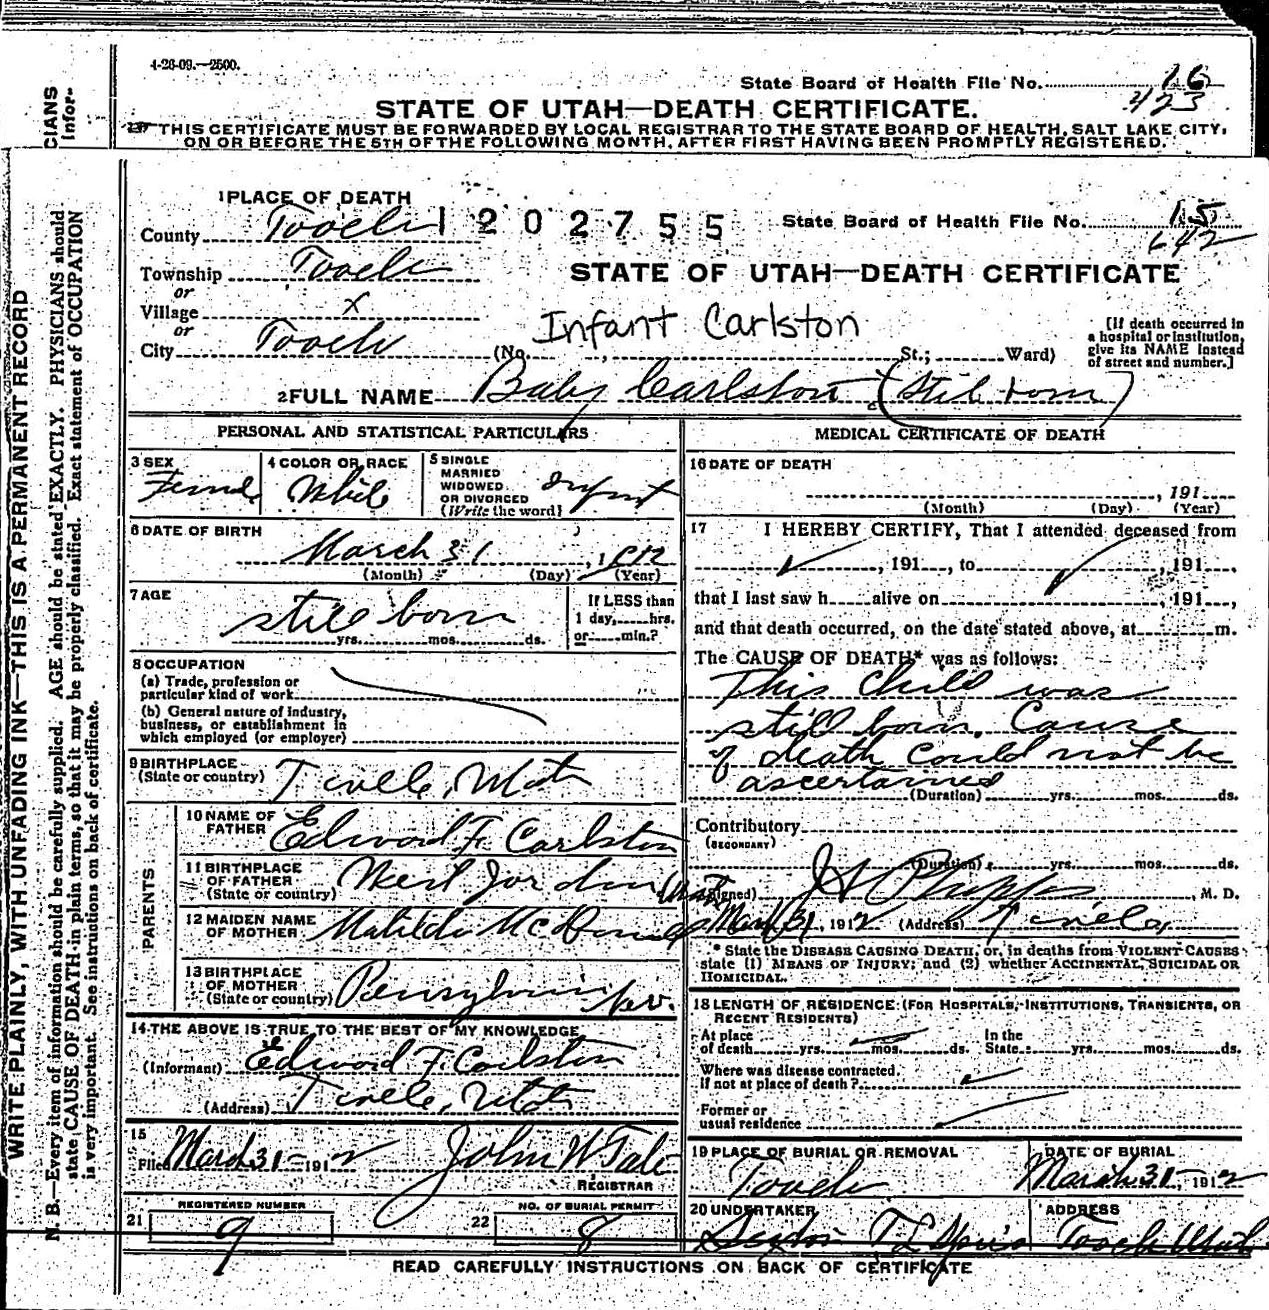 4-26-09.—2500.
State Board of Health File No. 16
423
STATE OF UTAH—DEATH CERTIFICATE.
THIS CERTIFICATE MUST BE FORWARDED BY LOCAL REGISTRAR TO THE STATE BOARD OF HEALTH, SALT LAKE CITY,
ON OR BEFORE THE 5TH OF THE FOLLOWING MONTH, AFTER FIRST HAVING BEEN PROMPTLY REGISTERED.
CIANS
Infor-
WRITE PLAINLY, WITH UNFADING INK—THIS IS A PERMANENT RECORD
N. B.—Every item of information should be carefully supplied. AGE should be stated EXACTLY. PHYSICIANS should
state CAUSE OF DEATH in plain terms, so that it may be properly classified. Exact statement of OCCUPATION
is very important. See instructions on back of certificate.
1 PLACE OF DEATH
County Tooele
1202755
State Board of Health File No. 15
642
Township Tooele
or
STATE OF UTAH—DEATH CERTIFICATE
Village x
or
Infant Carlston
City Tooele (No. , St.; Ward)
[If death occurred in
a hospital or institution,
give its NAME instead
of street and number.]
2 FULL NAME Baby Carlston (Still born)
PERSONAL AND STATISTICAL PARTICULARS
3 SEX
Female
4 COLOR OR RACE
White
5 SINGLE
MARRIED
WIDOWED
OR DIVORCED
(Write the word)
Infant
6 DATE OF BIRTH
March 31, 1912
(Month) (Day) (Year)
7 AGE
still born
yrs. mos. ds.
If LESS than
1 day, hrs.
or min.?
8 OCCUPATION
(a) Trade, profession or
particular kind of work
(b) General nature of industry,
business, or establishment in
which employed (or employer)
9 BIRTHPLACE
(State or country) Tooele, Utah
PARENTS
10 NAME OF
FATHER Edward F. Carlston
11 BIRTHPLACE
OF FATHER
(State or country) West Jordan Utah
12 MAIDEN NAME
OF MOTHER Matilda McDonald
13 BIRTHPLACE
OF MOTHER
(State or country) Pensylvania
14 THE ABOVE IS TRUE TO THE BEST OF MY KNOWLEDGE
(Informant) Edward F. Carlston
(Address) Tooele, Utah
15
Filed March 31-1912 John W Tate
REGISTRAR
REGISTERED NUMBER
21 9
NO. OF BURIAL PERMIT
22 8
MEDICAL CERTIFICATE OF DEATH
16 DATE OF DEATH
, 191
(Month) (Day) (Year)
17 I HEREBY CERTIFY, That I attended deceased from
, 191 , to , 191 ,
that I last saw h alive on , 191 ,
and that death occurred, on the date stated above, at m.
The CAUSE OF DEATH* was as follows:
This child was
still born. Cause
of death could not be
ascertained
(Duration) yrs. mos. ds.
Contributory
(SECONDARY)
(Duration) yrs. mos. ds.
(Signed) J H Phipps, M. D.
Mar 31, 1912 (Address) Tooele
* State the DISEASE CAUSING DEATH, or, in deaths from VIOLENT CAUSES
state (1) MEANS OF INJURY; and (2) whether ACCIDENTAL, SUICIDAL OR
HOMICIDAL.
18 LENGTH OF RESIDENCE (FOR HOSPITALS, INSTITUTIONS, TRANSIENTS, OR
RECENT RESIDENTS)
At place
of death yrs. mos. ds.
In the
State yrs. mos. ds.
Where was disease contracted.
If not at place of death?
Former or
usual residence
19 PLACE OF BURIAL OR REMOVAL
Tooele
DATE OF BURIAL
March 31-, 1912
20 UNDERTAKER
Sexton
ADDRESS
Tooele Utah
READ CAREFULLY INSTRUCTIONS ON BACK OF CERTIFICATE